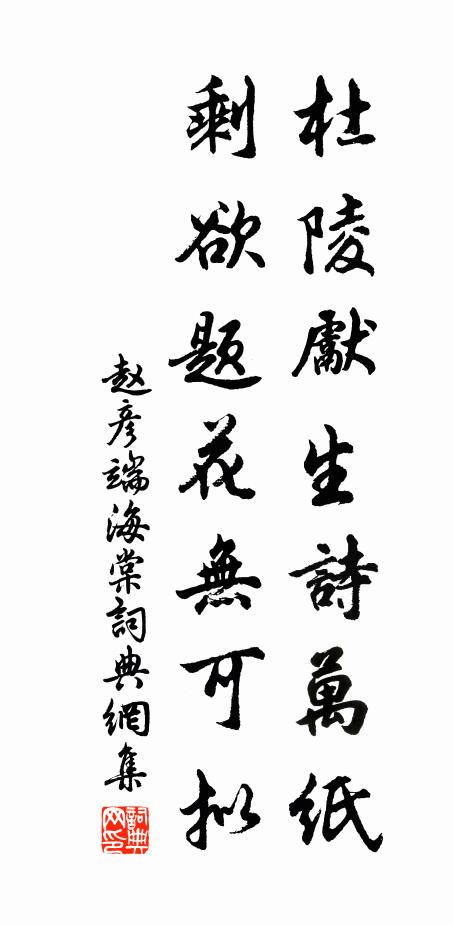 杜陵獻生詩萬紙
剩欲題花無可拟
赵彦端海棠詞典網集
詞典网印